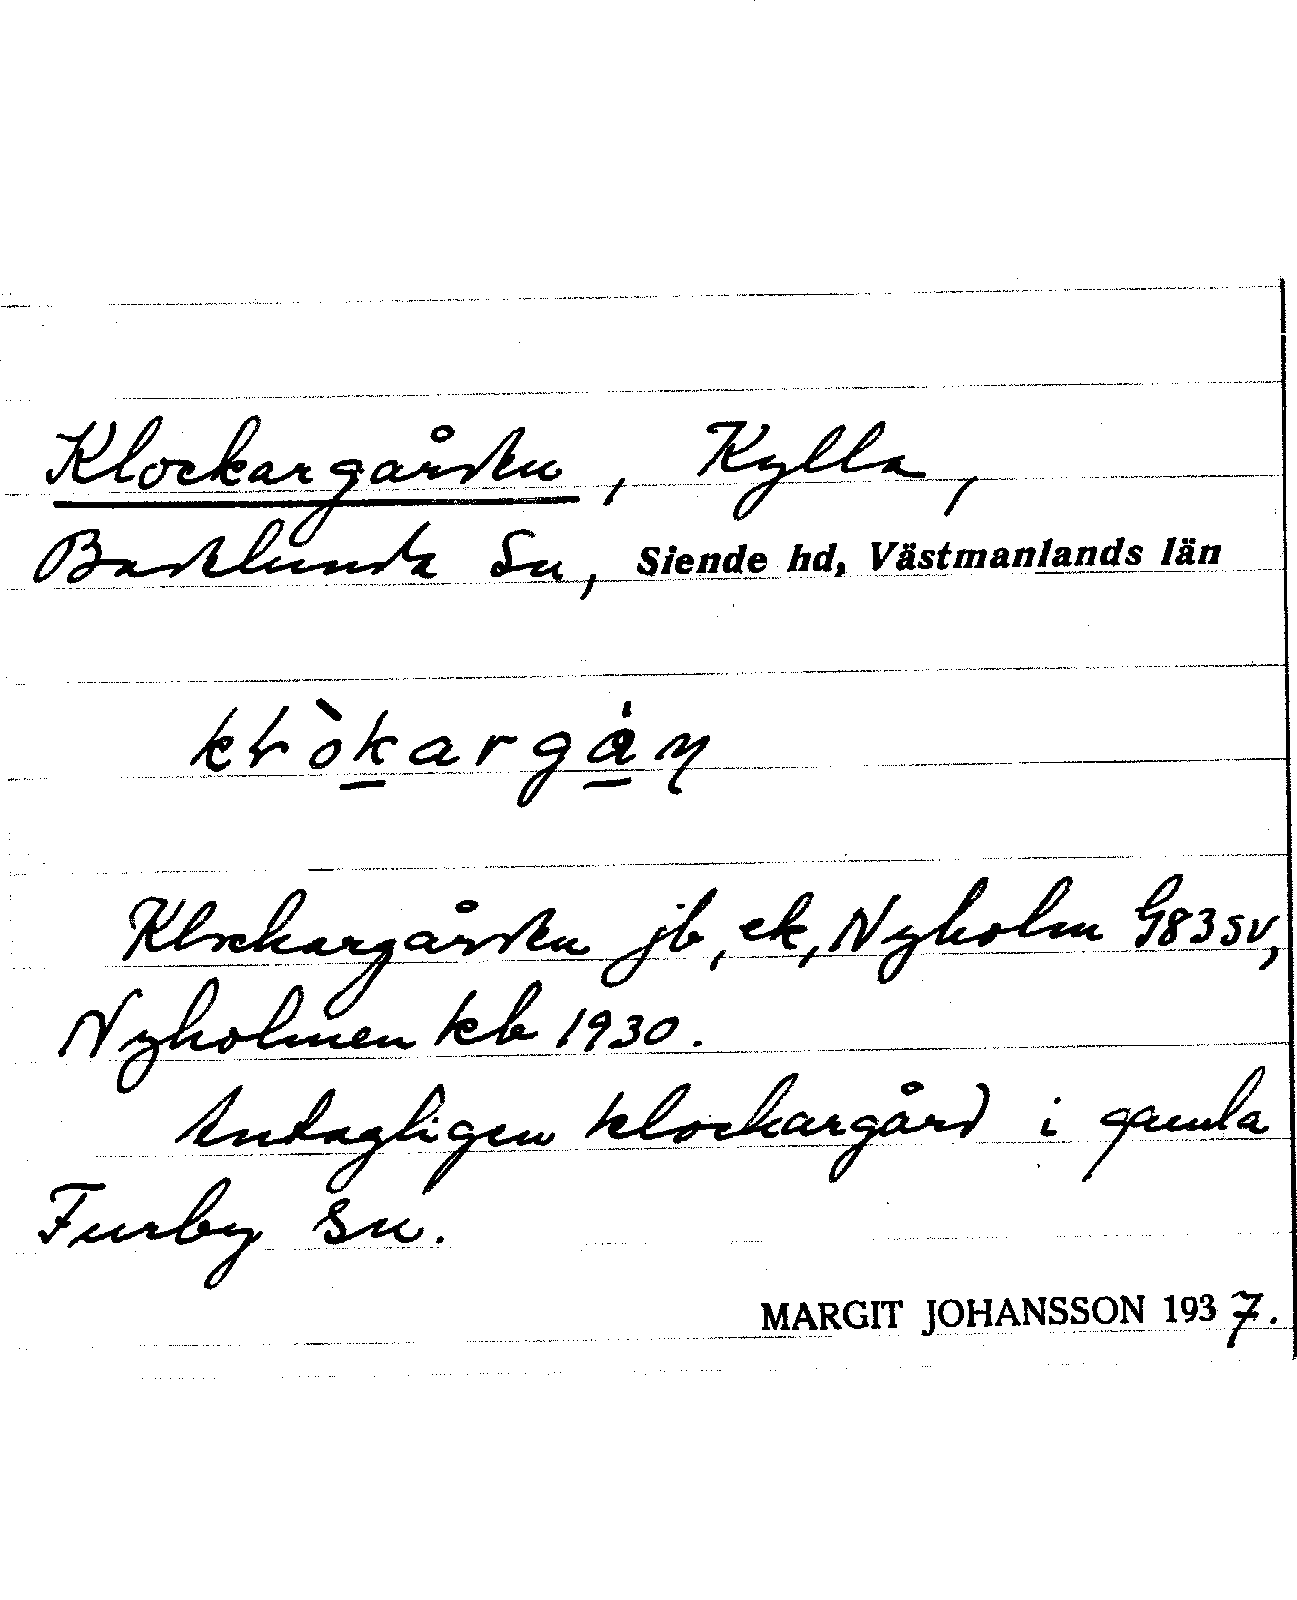 Klockargården, Kylla,
Badelunda Sn, Siende hd, Västmanlands län
Klockargården jb, ek, Nyholm G83SV,
Nyholmen kb 1930.
Antagligen klockargård i gamla
Furby sn.
MARGIT JOHANSSON 1937.